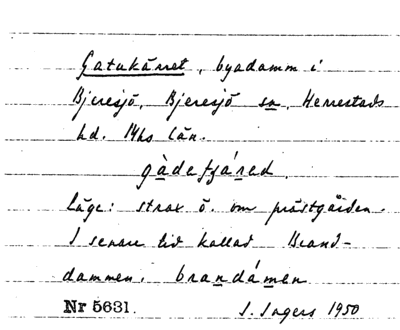 Gatukärret, byadamm i
Bjeresjö, Bjeresjö sn, Herrestads
hd. Mhs län.
gàdefjáred.
Läge: strax ö. om prästgården.
I senare tid kallad Brand-
dammen. brandámen
Nr 5631. I. Ingers 1950